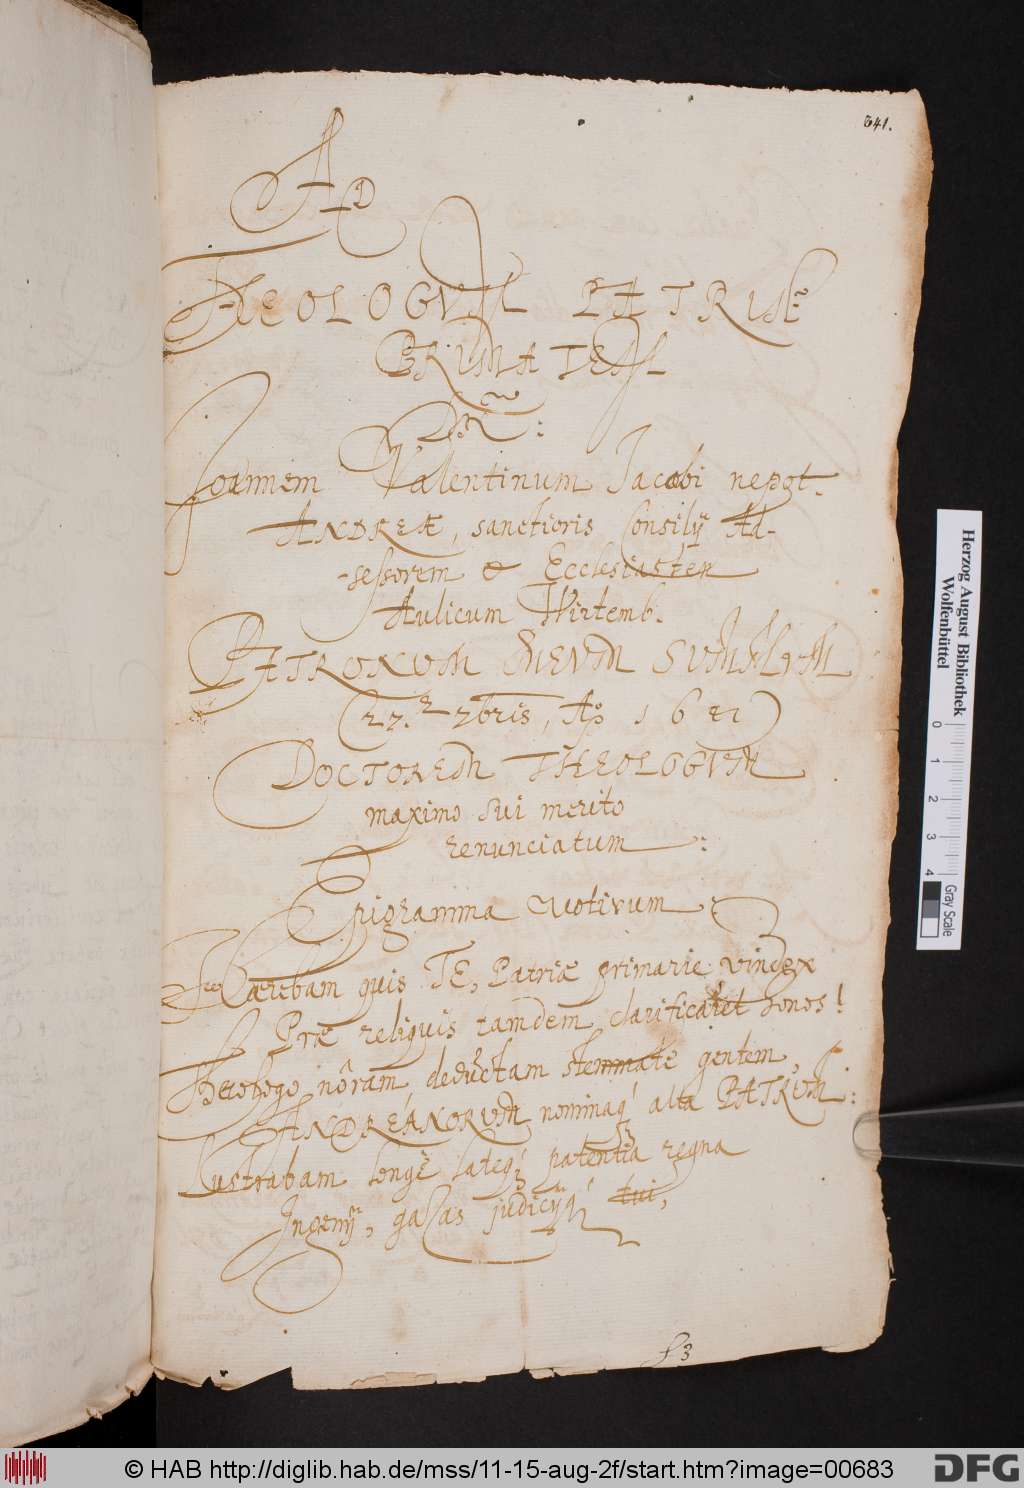 341.
AD
THEOLOGUM PATRIUM
PRIMATEM
DN:
Joannem Valentinum Jacobi nepot.
ANDREÆ, sanctioris Consilÿ Ad-
-sessorem & Ecclesiasten
Aulicum Wirtemb.
PATRONUM MEUM SUMMUM
27. 7bris, Aō 1641
DOCTOREM THEOLOGUM
maximo sui merito
renunciatum :
Epigramma votivum
Quærebam quis TE, Patriæ primarie vindex
Præ reliquis tamdem clarificaret honos!
nôram deductam stemmate gentem,
ANDREÁNORUM nominaq́ alta PATRUM:
Lustrabam longè lateq́ patentia regna
Ingenÿ, gazas judicÿq́ tui,
f 3
Herzog August Bibliothek
Wolfenbüttel
0 1 2 3 4
Gray Scale
© HAB http://diglib.hab.de/mss/11-15-aug-2f/start.htm?image=00683
DFG